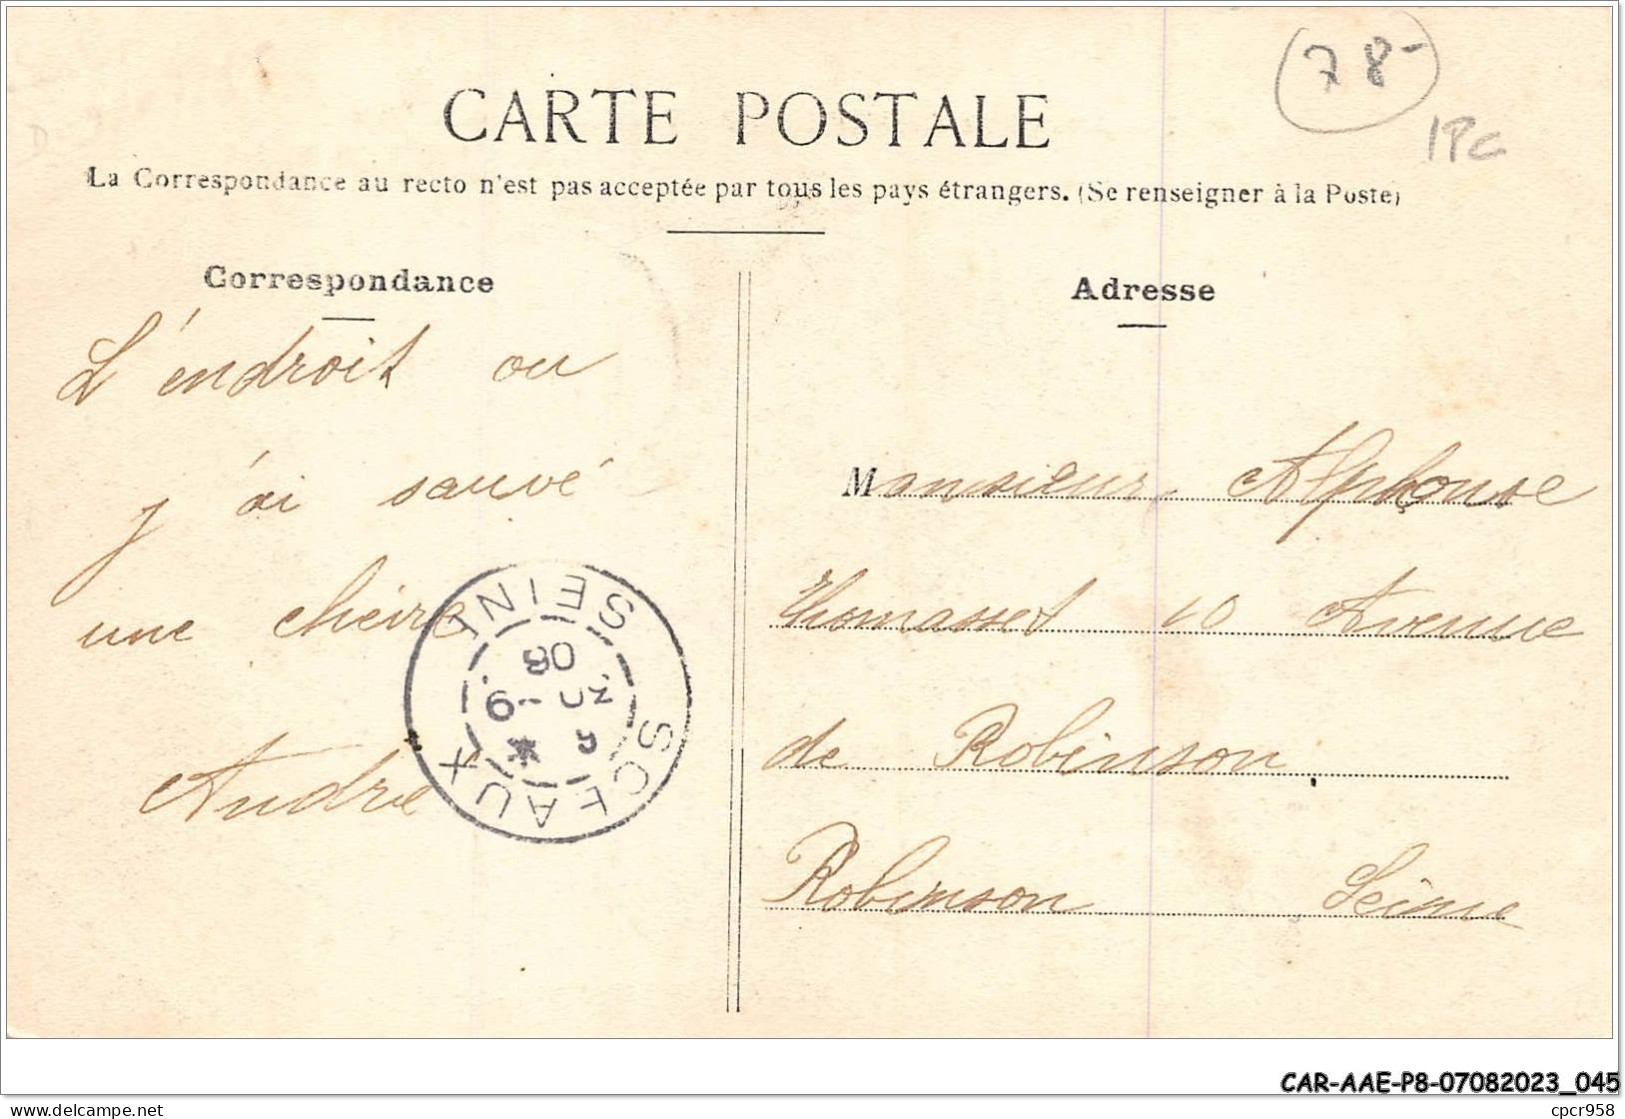 78-
CARTE POSTALE
La Correspondance au recto n'est pas acceptée par tous les pays étrangers. (Se renseigner à la Poste)
Correspondance
L'endroit ou
j'ai sauvé
une chéire
André
Adresse
Monsieur Alphonse
Thomasset 10 Avenue
de Robinson
Robinson Seine
SCEAUX SEINE
08
CAR-AAE-P8-07082023_045
delcampe.net
cpcr958